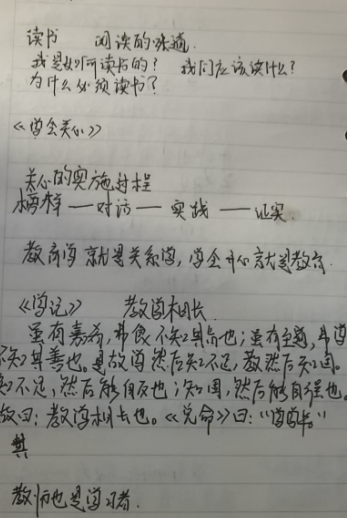 读书 阅读的味道.
我是如何读书的? 我们应该读什么?
为什么必须读书?
《学会关心》
关心的实施过程
榜样 — 对话 — 实践 — 证实.
教育学就是关系学, 学会关心就是教育.
《学记》 教学相长.
虽有嘉肴, 弗食不知其旨也; 虽有至道, 弗学
不知其善也. 是故学然后知不足, 教然后知困.
知不足, 然后能自反也; 知困, 然后能自强也.
故曰: 教学相长也. 《兑命》曰: "学学半"
其
教师也是学习者.